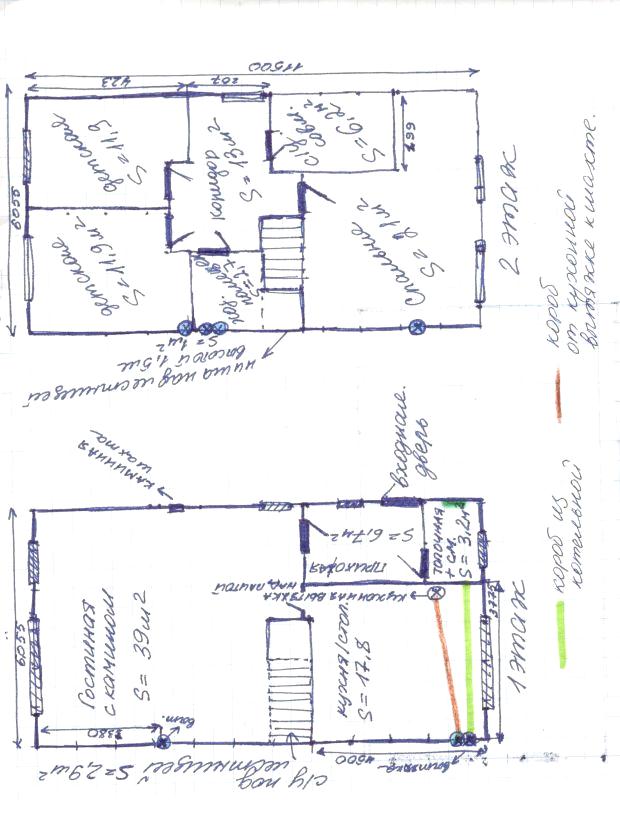 11500
423
287
6055
детская
S=11,9
детская
S=11,9 м²
коридор
S=13 м²
с/у
совм.
S=6,2 м²
Спальня
S=21 м²
S=1 м²
ниша над лестницей
высотой 1,5 м
2 этаж
короб
от кухонной
вытяжке к шахте.
каминная
шахта
входная
дверь
6055
Гостиная
с камином
S=39 м²
3380
вент.
прихожая
S=6,7 м²
топочная
+ см.
S=3,2 м²
кухонная вытяжка
над плитой
кухня/стол.
S=17,8
3775
4500
вытяжка
с/у под
лестницей S=2,9 м²
1 этаж
короб из
котельной